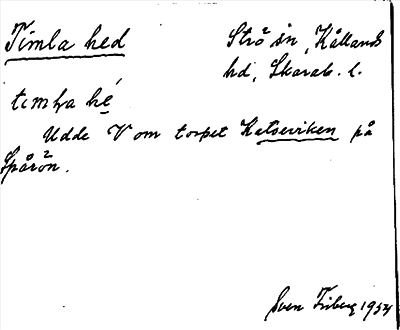 Timla hed
Strö sn, Kållands
hd, Skarab. l.
timla hé
Udde V om torpet Katseviken på
Spårön.
Sven Friberg 1954